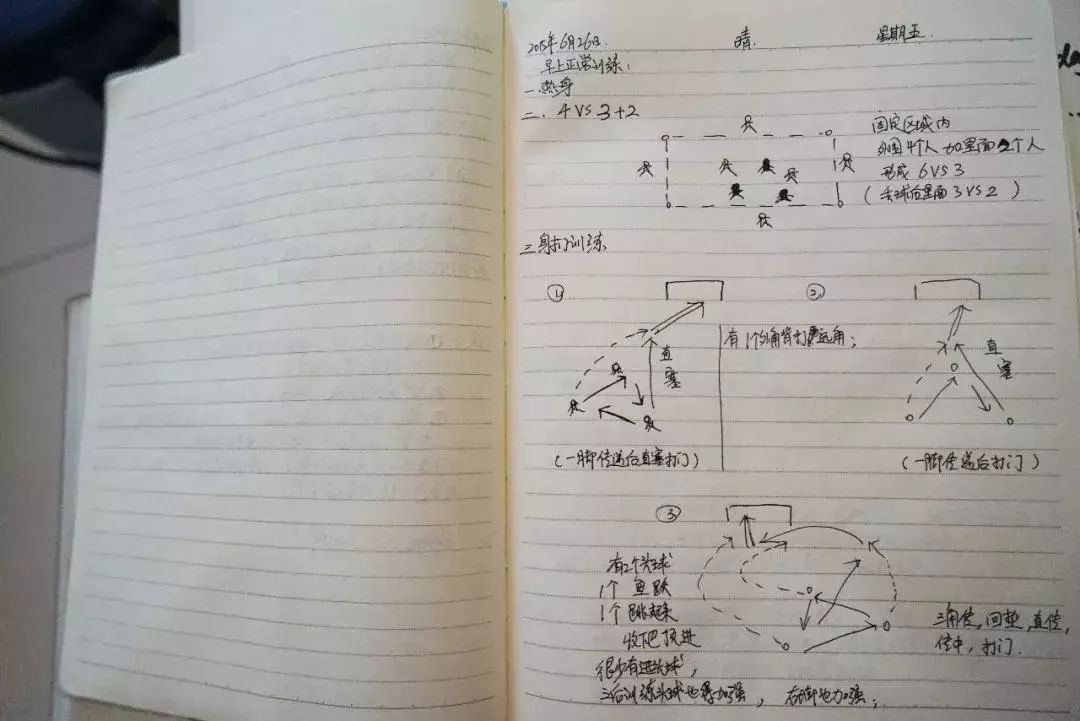 2015年6月26日. 晴. 星期五
早上正常训练:
一.热身
二. 4 VS 3+2
固定区域内
外围4个人加里面2个人
形成 6 VS 3
(丢球后里面 3 VS 2)
三.射门训练
①
直塞
(一脚传递后直塞打门)
有1个外角背打远角;
②
直塞
(一脚传递后打门)
③
有2个头球
1个 鱼跃
1个 跳起来
收下巴顶进
很少有进头球,
三角传,回垫,直传,
传中,打门.
后训练头球也得加强, 右脚也加强;